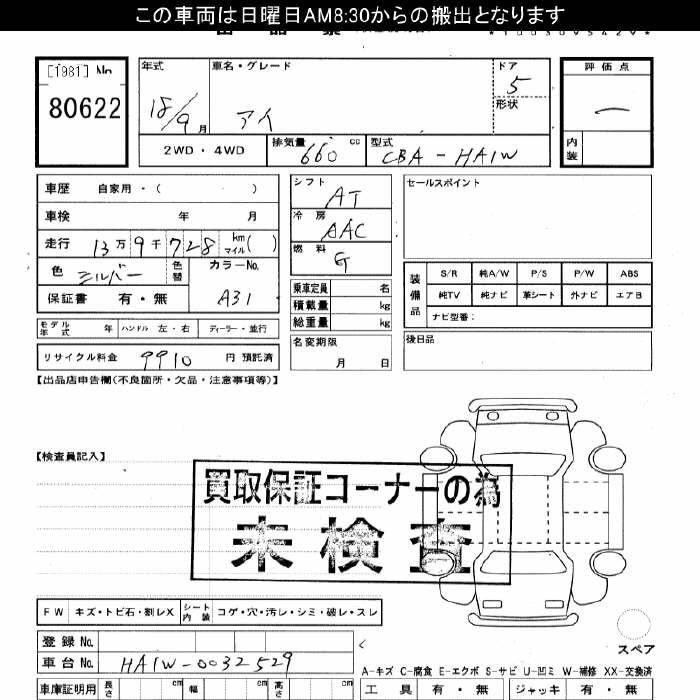 この車両は日曜日AM8:30からの搬出となります
[1981] No
80622
年式 車名・グレード ドア 評価点
18/9月 アイ 5 ー
形状
2WD・4WD 排気量 660 cc 型式 CBA-HA1W 内装
車歴 自家用・( )
車検 年 月
走行 13万9千728 km マイル ( )
色 シルバー 色替 カラーNo.
保証書 有・無 A31
モデル年式 年 ハンドル 左・右 ディーラー・並行
リサイクル料金 9910 円 預託済
シフト AT
冷房 AAC
燃料 G
乗車定員 名
積載量 kg
総重量 kg
名変期限 月 日
セールスポイント
装備品 S/R 純A/W P/S P/W ABS
純TV 純ナビ 革シート 外ナビ エアB
ナビ型番:
後日品
【出品店申告欄(不良箇所・欠品・注意事項等)】
【検査員記入】
買取保証コーナーの為
未検査
FW キズ・トビ石・割レX シート内装 コゲ・穴・汚レ・シミ・破レ・スレ
登録No.
車台No. HA1W-0032529
スペア
A-キズ C-腐食 E-エクボ S-サビ U-凹ミ W-補修 XX-交換済
車庫証明用 長さ cm 幅 cm 高さ cm 工具 有・無 ジャッキ 有・無